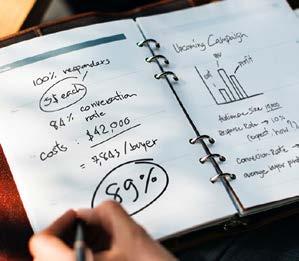 100% responders
5$ each
84% conversation
rate
$42,000
costs:
= 7,843/buyer
89%
Upcoming Campaign
cost
profit
Audience Size
Response Rate → 10%
(expect
Conversion Rate →
average buyer